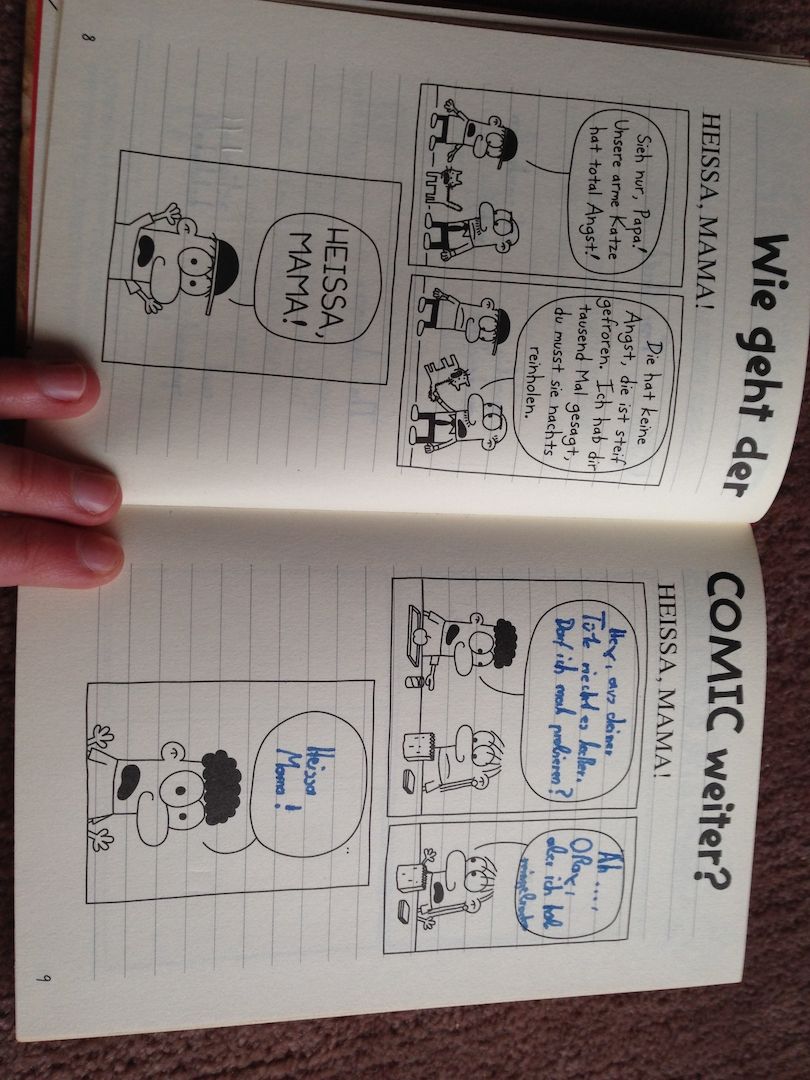 Wie geht der
HEISSA, MAMA!
Sieh nur, Papa!
Unsere arme Katze
hat total Angst!
Die hat keine
Angst, die ist steif
gefroren. Ich hab dir
tausend Mal gesagt,
du musst sie nachts
reinholen.
HEISSA,
MAMA!
8
COMIC weiter?
HEISSA, MAMA!
Hey, aus deiner
Tüte riecht es lecker.
Darf ich mal probieren?
Äh ...,
Okay,
aber ich hab
reingebrochen
Heissa
Mama!
9